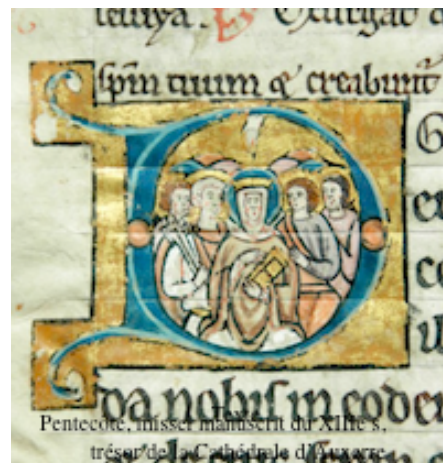 leluya. Exurgat
spm tuum & creabunt
da nobis in eodem
Pentecôte, missel manuscrit du XIIIe s,
trésor de la Cathédrale d'Auxerre